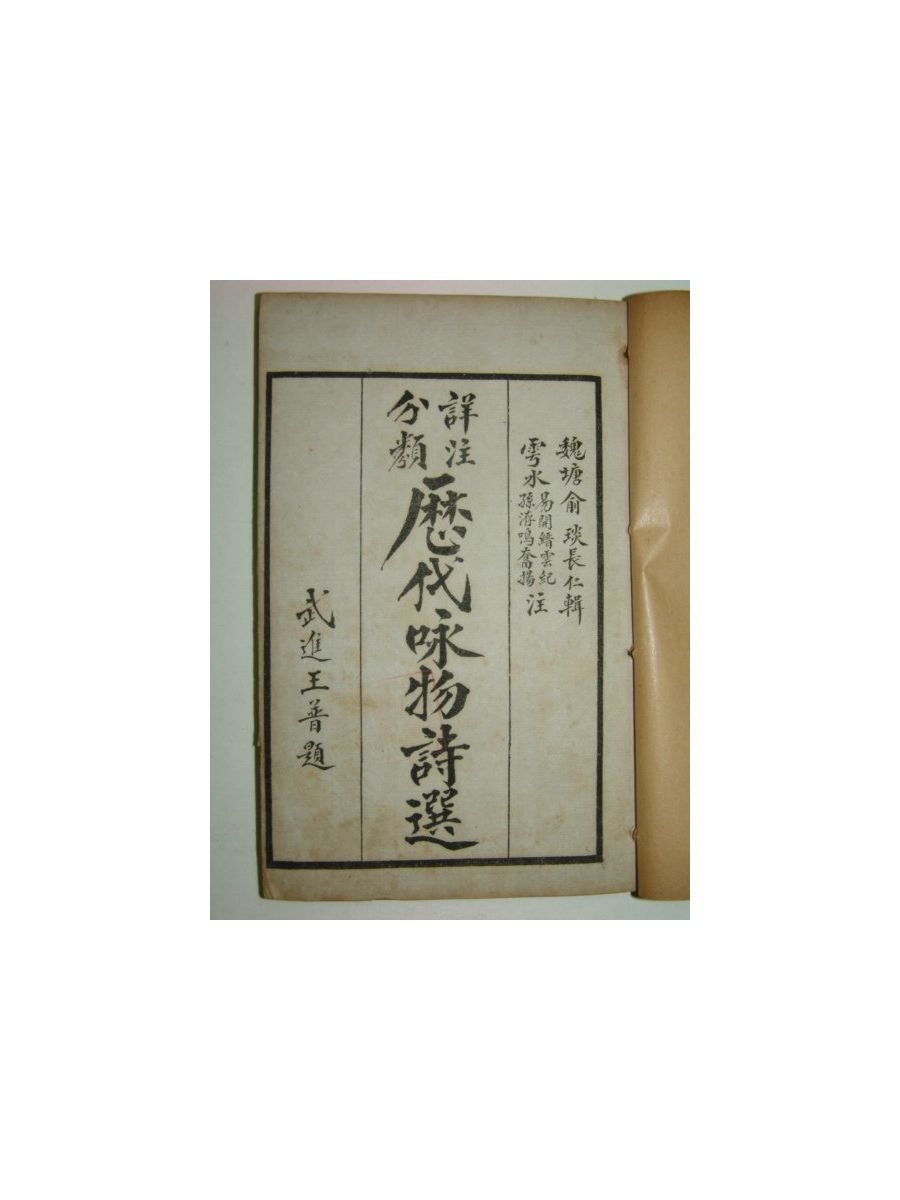 魏塘俞琰長仁輯
雩水易開縉雲紀孫洊鳴奮揚注
詳注分類歷代咏物詩選
武進王普題